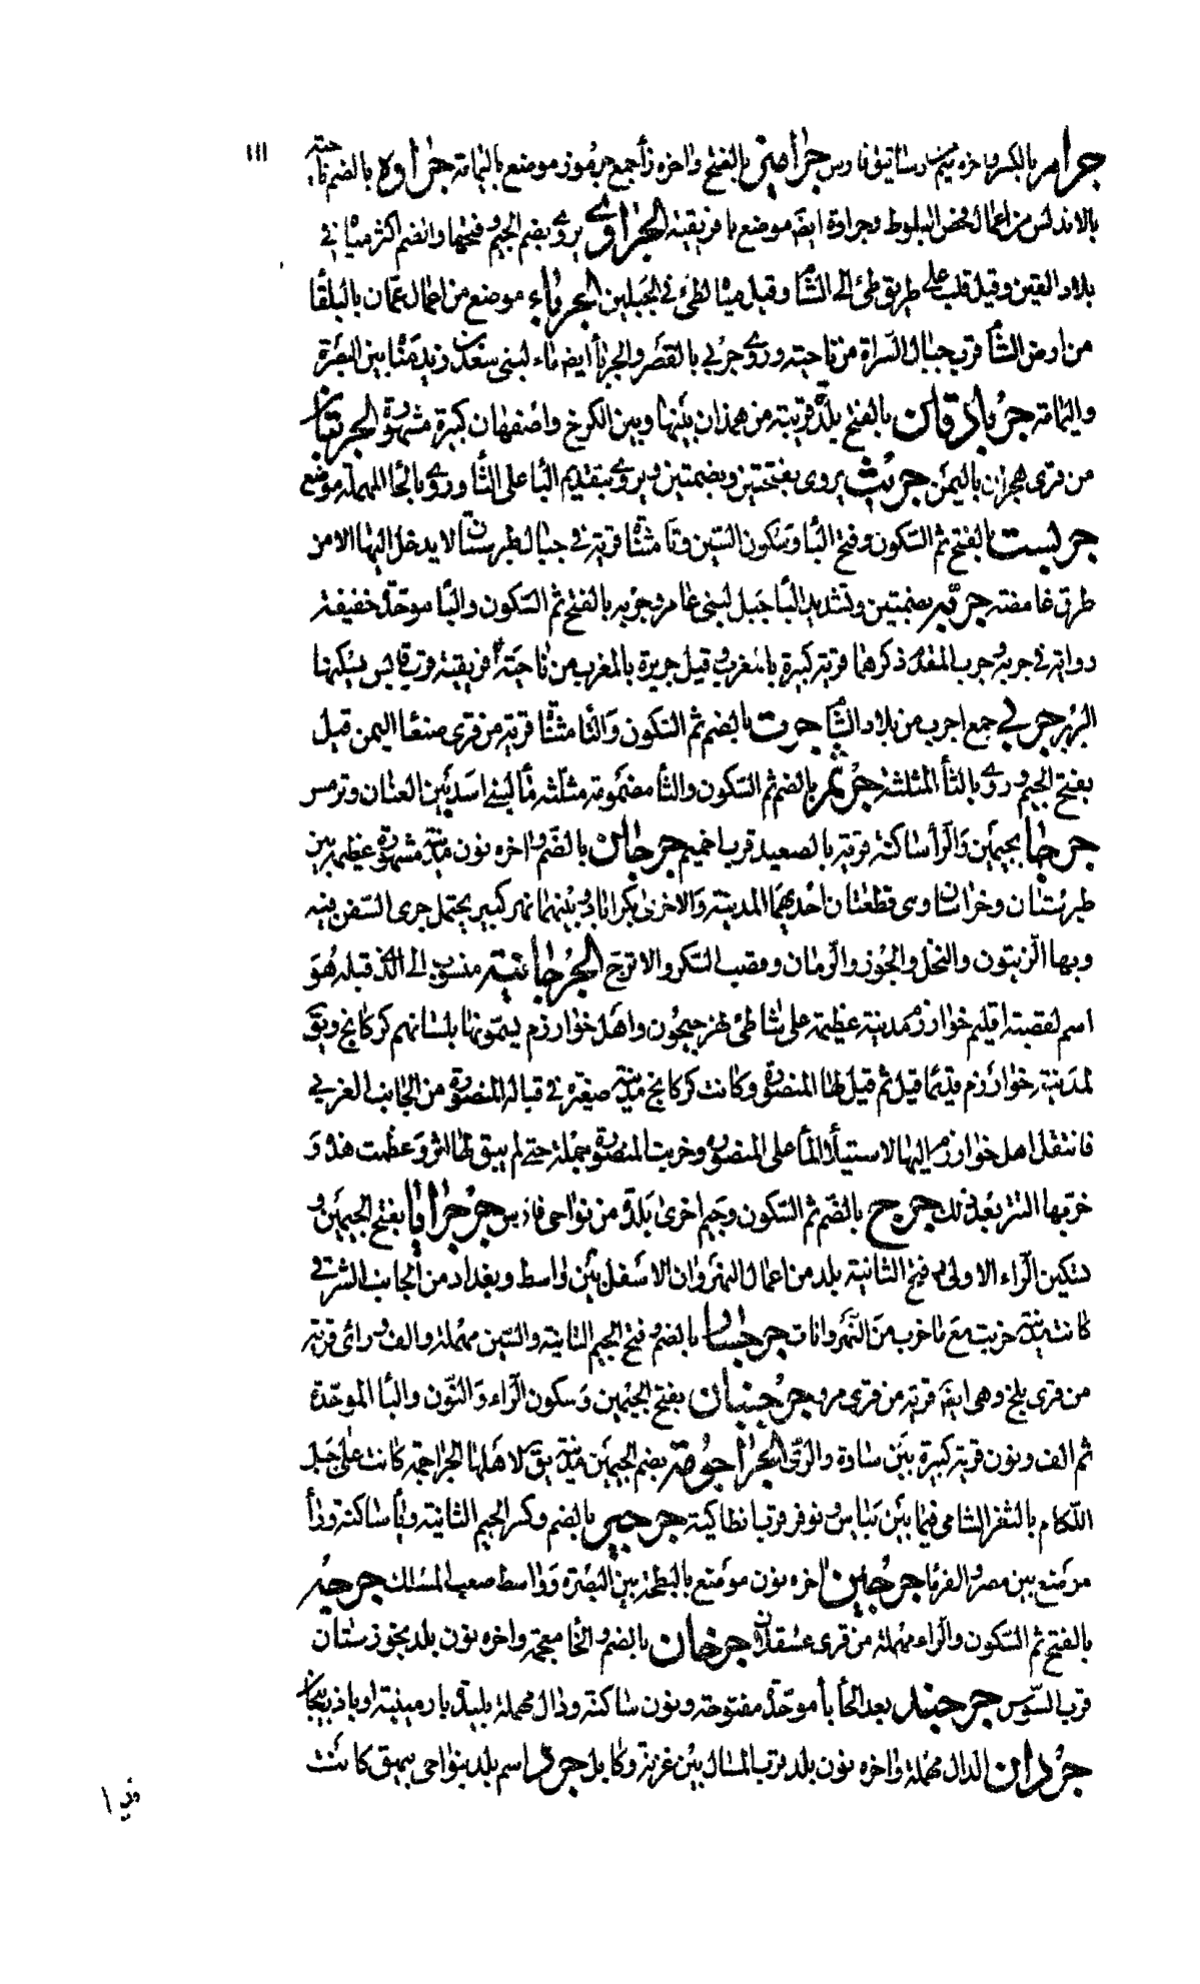 ١١١
جرام بالكسر واخره ميم من رساتيق فارس جراميز بالفتح واخره زأ جمع جرموز موضع باليمامة جراوة بالضم ناحية
بالاندلس من اعمال فحص البلوط وجراوة ايضا موضع بافريقية الجراوي يروى بضم الجيم وفتحها والضم اكثر مياه في
بلاد القين وقيل قلب على طريق طي الى الشأم وقيل مياه لطي في الجبلين الجرباء موضع من اعمال عمان بالبلقأ
من ارض الشأم قرب جبال السراة من ناحيته وروى جربي بالقصر والجربأ ايضا ماء لبنى سعد بن زيد مناة بين البصرة
واليمامة جرباذقان بالفتح بلدة قريبة من همذان بينها وبين الكرخ واصفهان كبيرة مشهورة الجربتان
من قرى هجران باليمن جربث يروى بفتحتين وبضمتين ويروى بتقديم البأ على الثأ وروى بالحأ المهملة موضع
جربست بالفتح ثم السكون وفتح البأ وسكون السين وتأ مثناة قرية في جبال طبرستان لا يدخل اليها الا من
طرق غامضة جربه بضمتين وتشديد البأ جبل لبنى عامر وجربه بالفتح ثم السكون والبأ موحدة خفيفة
رواية في جربة وجرب المقدم ذكرهما قرية كبيرة بالمغرب وقيل جزيرة بالمغرب من ناحية افريقية قرب قابس يسكنها
البربر جربي جمع اجرب من بلاد الشأم جرت بالضم ثم السكون والتأ مثناة قرية من قرى صنعا اليمن قيل
بفتح الجيم وروى بالثأ المثلثة جرثم بالضم ثم السكون والثأ مضمومة مثلثة مأ لبنى اسد بين القنان وترمس
جرجا بجيمين والرأ ساكنة قرية بالصعيد قرب اخميم جرجان بالضم واخره نون مدينة مشهورة عظيمة بين
طبرستان وخراسان وهى قطعتان احديهما المدينة والاخرى بكراباذ وبينهما نهر كبير يحتمل جرى السفن فيه
وبها الزيتون والنخل والجوز والرمان وقصب السكر والاترج الجرجانية منسوب الى الذى قبله هو
اسم لقصبة اقليم خوارزم مدينة عظيمة على شاطئ نهر جيحون واهل خوارزم يسمونها بلسانهم كركانج ويق
لمدينة خوارزم قديما فيل ثم قيل لها المنصورة وكانت كركانج مدينة صغيرة في قبالة المنصورة من الجانب الغربي
فانتقل اهل خوارزم اليها لاستيلأ المأ على المنصورة وخربت المنصورة بجملة حتى لم يبق لها اثر وعظمت هذه و
خربها التتر بعد ذلك جرج بالضم ثم السكون وجيم اخرى بلدة من نواحى فارس جرجرايا بفتح الجيمين و
تسكين الراء الاولى وفتح الثانية بلد من اعمال النهروان الاسفل بين واسط وبغداد من الجانب الشرقي
كانت مدينة خربت مع ما خرب من النهروانات جرجسار بالضم وفتح الجيم الثانية والسين مهملة والف وراى قرية
من قرى بلخ وهى ايضا قرية من قرى مرو جرجنبان بفتح الجيمين وسكون الراء والنون والبأ الموحدة
ثم الف ونون قرية كبيرة بين ساوة والرى الجرجومة بضم الجيمين مدينة يق لاهلها الجراجمة كانت على جبل
اللكام بالثغر الشامى فيما بين بياس وبوقر قرب انطاكية جرجير بالضم وكسر الجيم الثانية ويأ ساكنة ورأ
موضع بين مصر والفرما جرجين اخره نون موضع بالبطحة بين البصرة وواسط صعب المسلك جرحه
بالفتح ثم السكون والراء مهملة من قرى عسقلان جرخان بالضم والخأ معجمة واخره نون بلد بخوزستان
قرب السوس جرخبند بعد الخأ بأ موحدة مفتوحة ونون ساكنة ودال مهملة بليدة بارمينية او باذربيجان
جردان الدال مهملة واخره نون بلد قرب زابلستان بين غزنة وكابل جرد اسم بلد بنواحى بيهق كانت